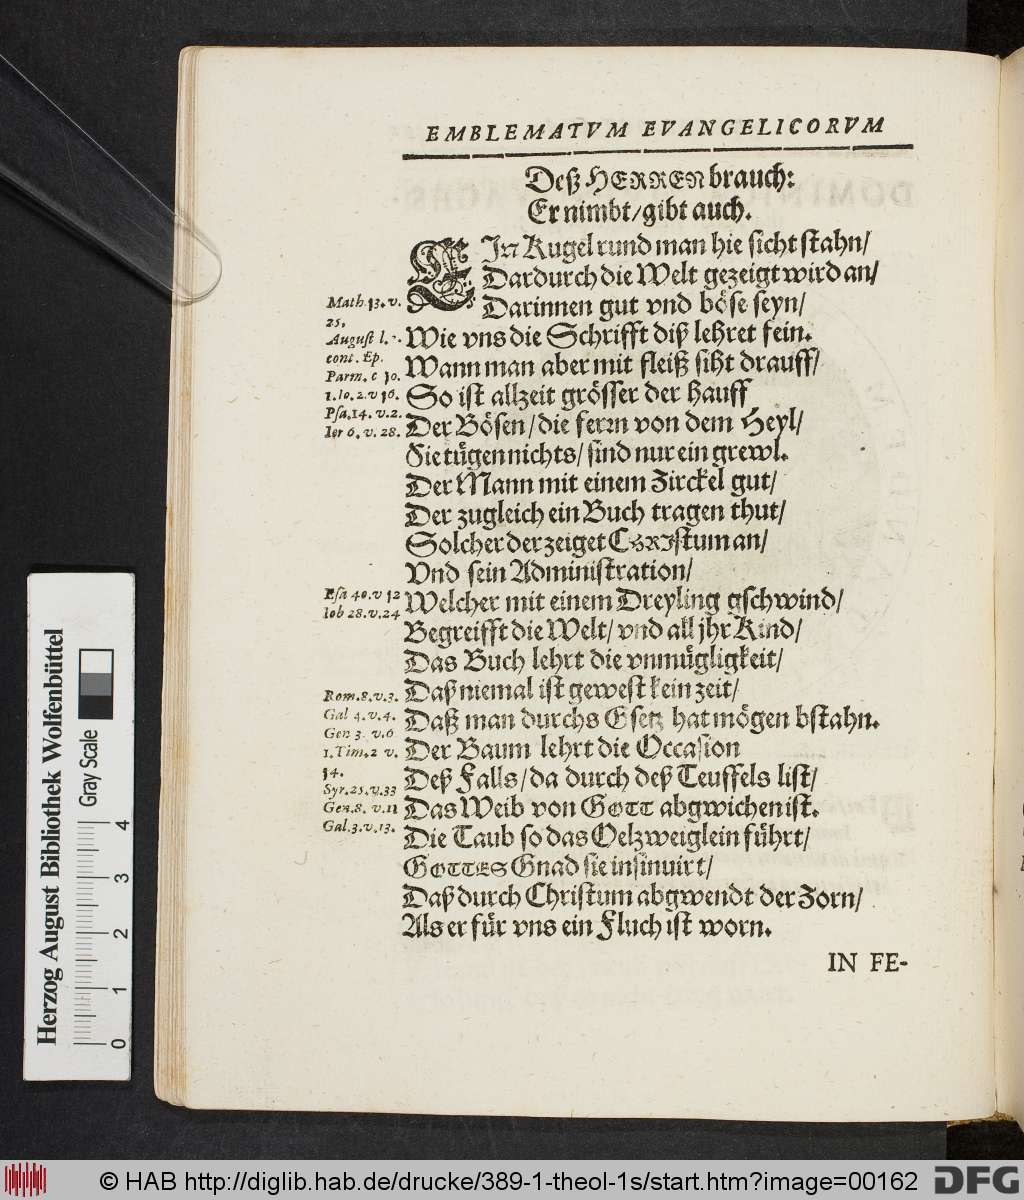 EMBLEMATVM EVANGELICORVM
Deß HERREN brauch:
Er nimbt/gibt auch.
EIn Kugel rund man hie sicht stahn/
Dardurch die Welt gezeigt wird an/
Darinnen gut vnd böse seyn/
Wie vns die Schrifft diß lehret fein.
Wann man aber mit fleiß siht drauff/
So ist allzeit grösser der hauff
Der Bösen/die ferrn von dem Heyl/
Sie tügen nichts/sind nur ein grewl.
Der Mann mit einem Zirckel gut/
Der zugleich ein Buch tragen thut/
Solcher der zeiget CHRIstum an/
Vnd sein Administration/
Welcher mit einem Dreyling gschwind/
Begreifft die Welt/vnd all jhr Kind/
Das Buch lehrt die vnmügligkeit/
Daß niemal ist gewest kein zeit/
Daß man durchs Gsetz hat mögen bstahn.
Der Baum lehrt die Occasion
Deß Falls/da durch deß Teuffels list/
Das Weib von GOTT abgwichen ist.
Die Taub so das Oelzweiglein führt/
GOTTES Gnad sie insinuirt/
Daß durch Christum abgwendt der Zorn/
Als er für vns ein Fluch ist worn.
Math 13. v.
25.
August l.
cont. Ep.
Parm. c 10.
1. Io. 2. v 16.
Psa. 14. v. 2.
Ier 6. v. 28.
Psa 40. v 12
Iob 28. v. 24
Rom. 8. v. 3.
Gal 4. v. 4.
Gen 3. v. 6
1. Tim. 2 v.
14.
Syr. 25. v. 33
Gen. 8. v. 11
Gal. 3. v. 13.
IN FE-
Herzog August Bibliothek Wolfenbüttel
Gray Scale
0 1 2 3 4
© HAB http://diglib.hab.de/drucke/389-1-theol-1s/start.htm?image=00162
DFG